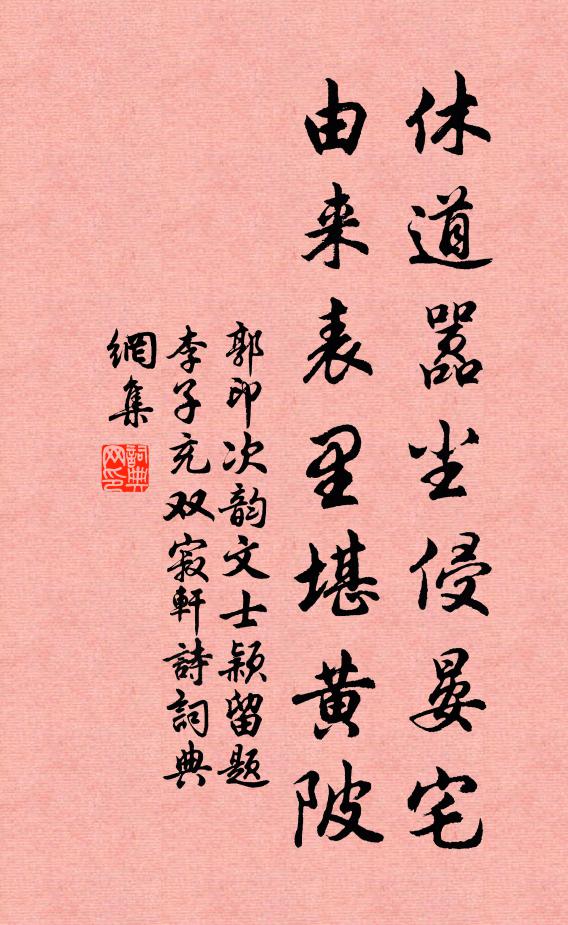 休道嚣尘侵晏宅
由来表里堪黄陂
郭印次韵文士颖留题
李子充双寂軒詩詞典
網集
詞典网印